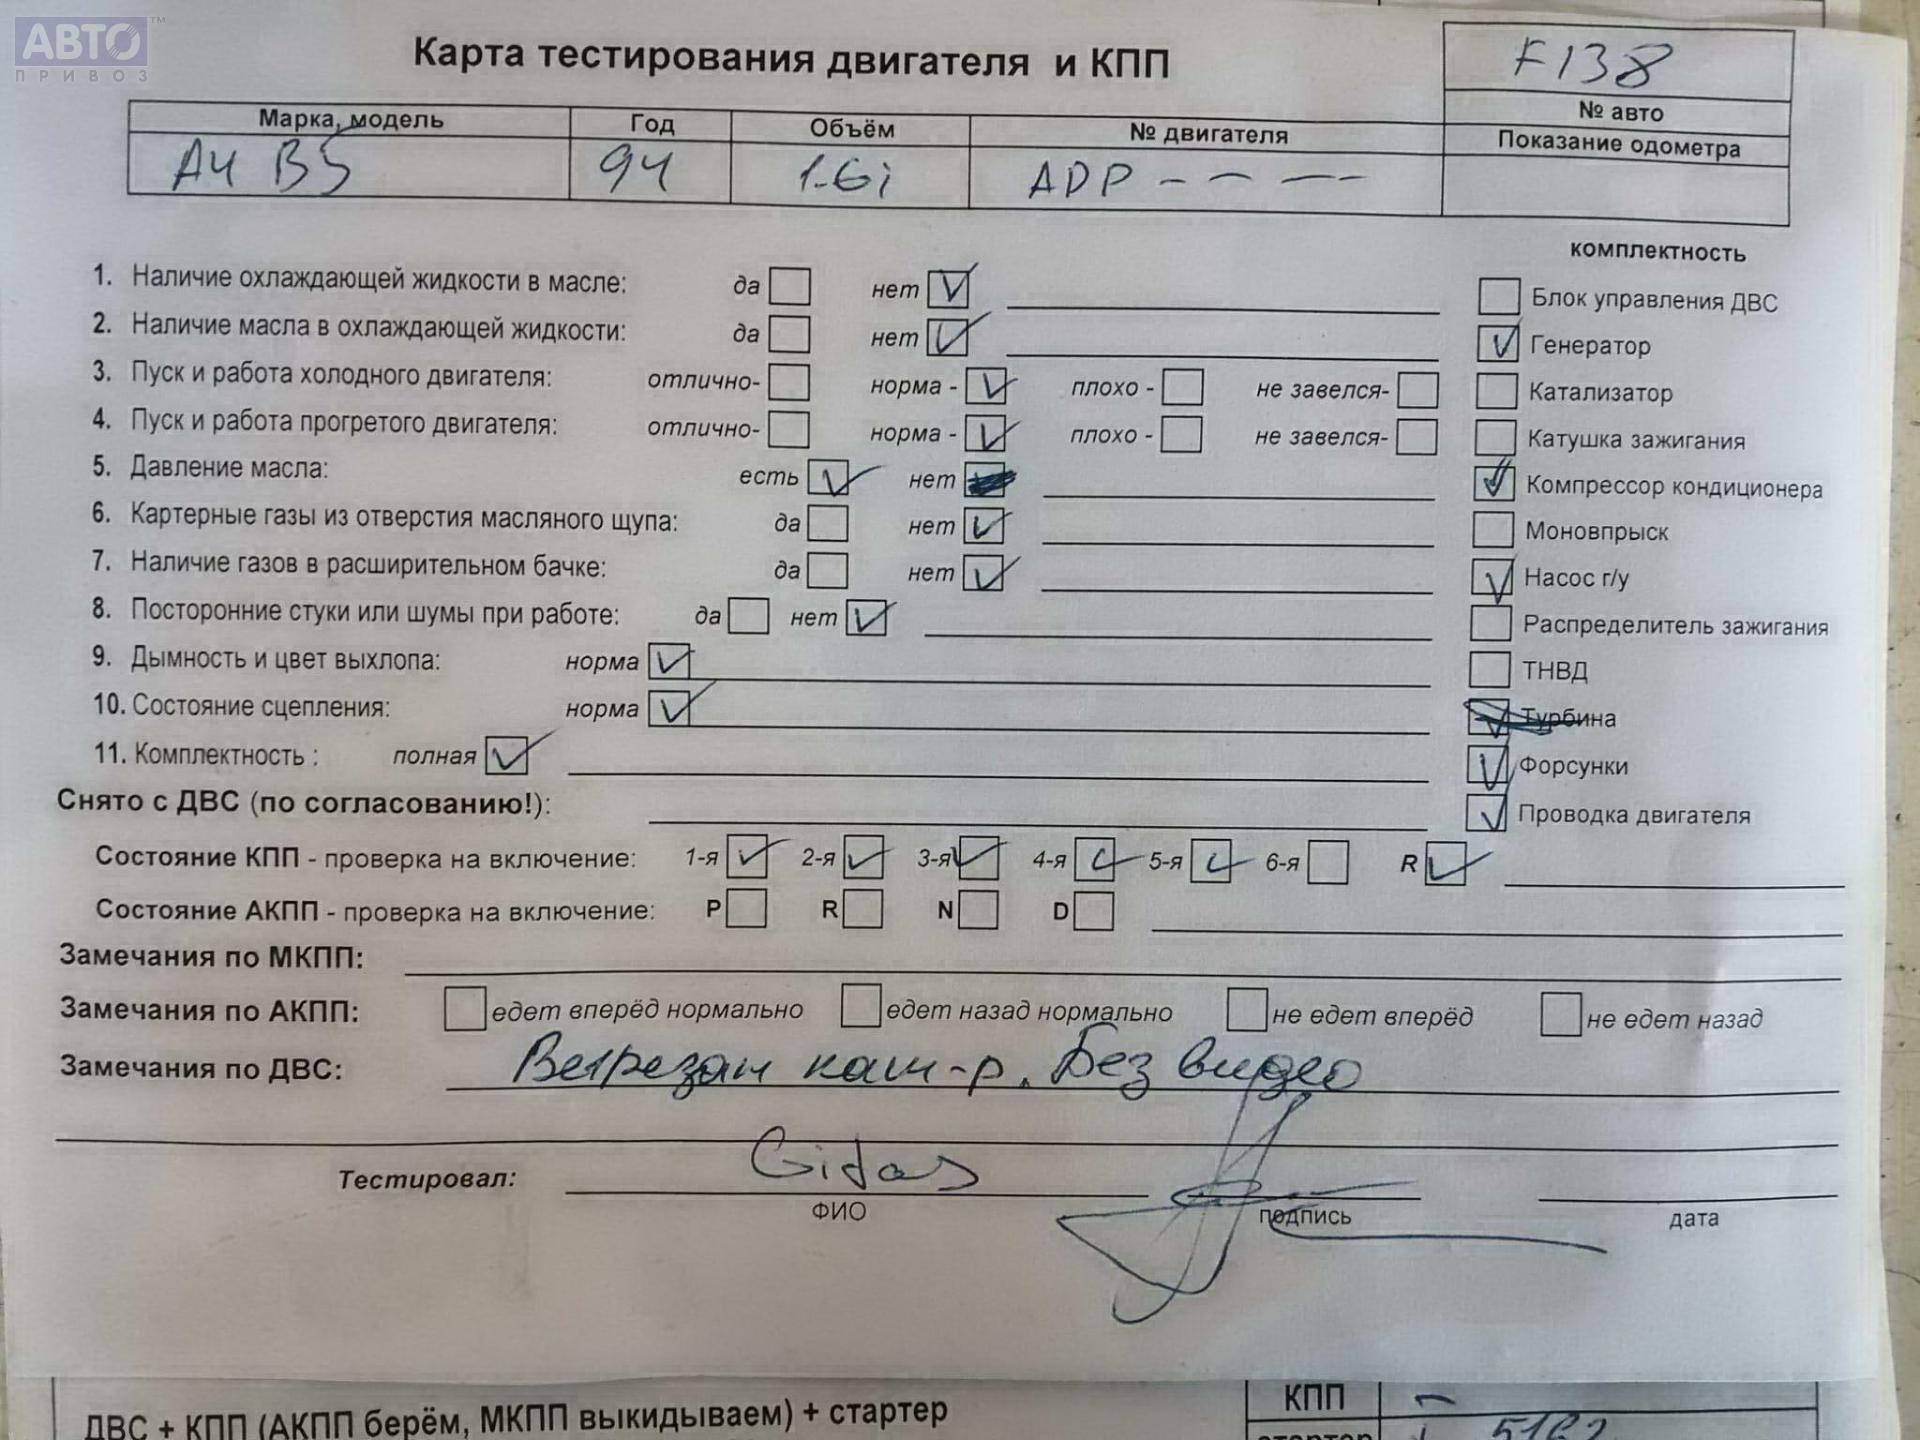 АВТО™
ПРИВОЗ
Карта тестирования двигателя и КПП
F138
№ авто
Марка, модель Год Объём № двигателя Показание одометра
A4 B5 94 1.6i ADP - - - -
комплектность
1. Наличие охлаждающей жидкости в масле: да нет
Блок управления ДВС
2. Наличие масла в охлаждающей жидкости: да нет
Генератор
3. Пуск и работа холодного двигателя: отлично- норма - плохо - не завелся-
Катализатор
4. Пуск и работа прогретого двигателя: отлично- норма - плохо - не завелся-
Катушка зажигания
5. Давление масла: есть нет
Компрессор кондиционера
6. Картерные газы из отверстия масляного щупа: да нет
Моновпрыск
7. Наличие газов в расширительном бачке: да нет
Насос г/у
8. Посторонние стуки или шумы при работе: да нет
Распределитель зажигания
9. Дымность и цвет выхлопа: норма
ТНВД
10. Состояние сцепления: норма
Турбина
11. Комплектность : полная
Форсунки
Снято с ДВС (по согласованию!):
Проводка двигателя
Состояние КПП - проверка на включение: 1-я 2-я 3-я 4-я 5-я 6-я R
Состояние АКПП - проверка на включение: P R N D
Замечания по МКПП:
Замечания по АКПП: едет вперёд нормально едет назад нормально не едет вперёд не едет назад
Замечания по ДВС: Вырезан кат-р. Без видео
Тестировал: Gidas
ФИО подпись дата
ДВС + КПП (АКПП берём, МКПП выкидываем) + стартер
КПП
стартер